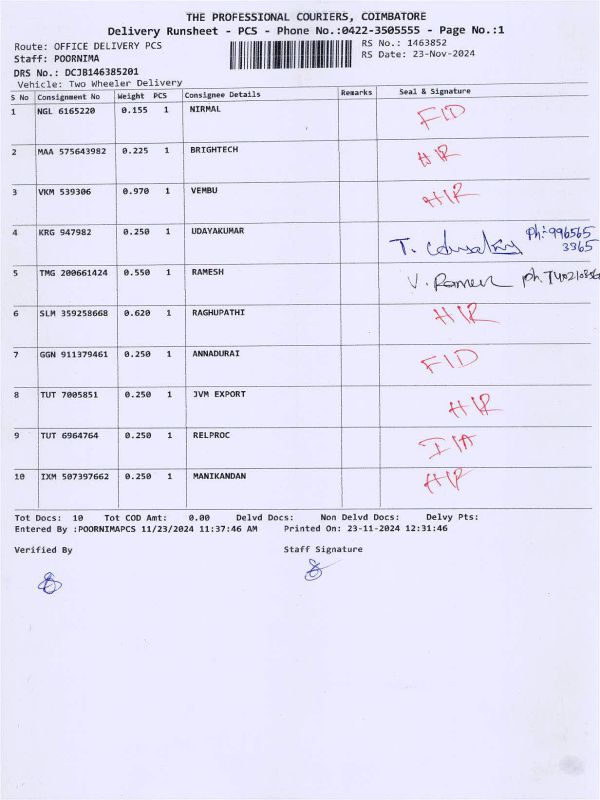 THE PROFESSIONAL COURIERS, COIMBATORE
Delivery Runsheet - PCS - Phone No.:0422-3505555 - Page No.:1
Route: OFFICE DELIVERY PCS RS No.: 1463852
Staff: POORNIMA RS Date: 23-Nov-2024
DRS No.: DCJB146385201
Vehicle: Two Wheeler Delivery
S No Consignment No Weight PCS Consignee Details Remarks Seal & Signature
1 NGL 6165220 0.155 1 NIRMAL FID
2 MAA 575643982 0.225 1 BRIGHTECH HIR
3 VKM 539306 0.970 1 VEMBU HIR
4 KRG 947982 0.250 1 UDAYAKUMAR T. Ph: 996565
3365
5 TMG 200661424 0.550 1 RAMESH V. Ph.
6 SLM 359258668 0.620 1 RAGHUPATHI HIR
7 GGN 911379461 0.250 1 ANNADURAI FID
8 TUT 7005851 0.250 1 JVM EXPORT HIR
9 TUT 6964764 0.250 1 RELPROC I/A
10 IXM 507397662 0.250 1 MANIKANDAN HIR
Tot Docs: 10 Tot COD Amt: 0.00 Delvd Docs: Non Delvd Docs: Delvy Pts:
Entered By :POORNIMAPCS 11/23/2024 11:37:46 AM Printed On: 23-11-2024 12:31:46
Verified By Staff Signature